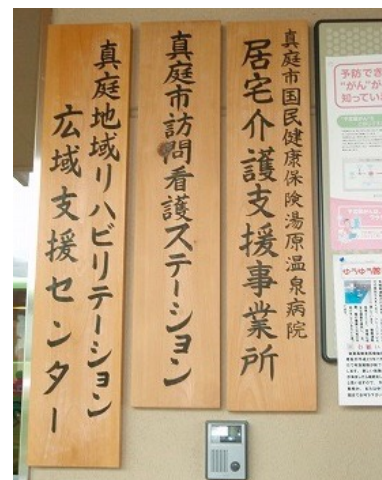 真庭市国民健康保険湯原温泉病院
居宅介護支援事業所
真庭市訪問看護ステーション
真庭地域リハビリテーション
広域支援センター
予防でき
"がん"が
知ってい